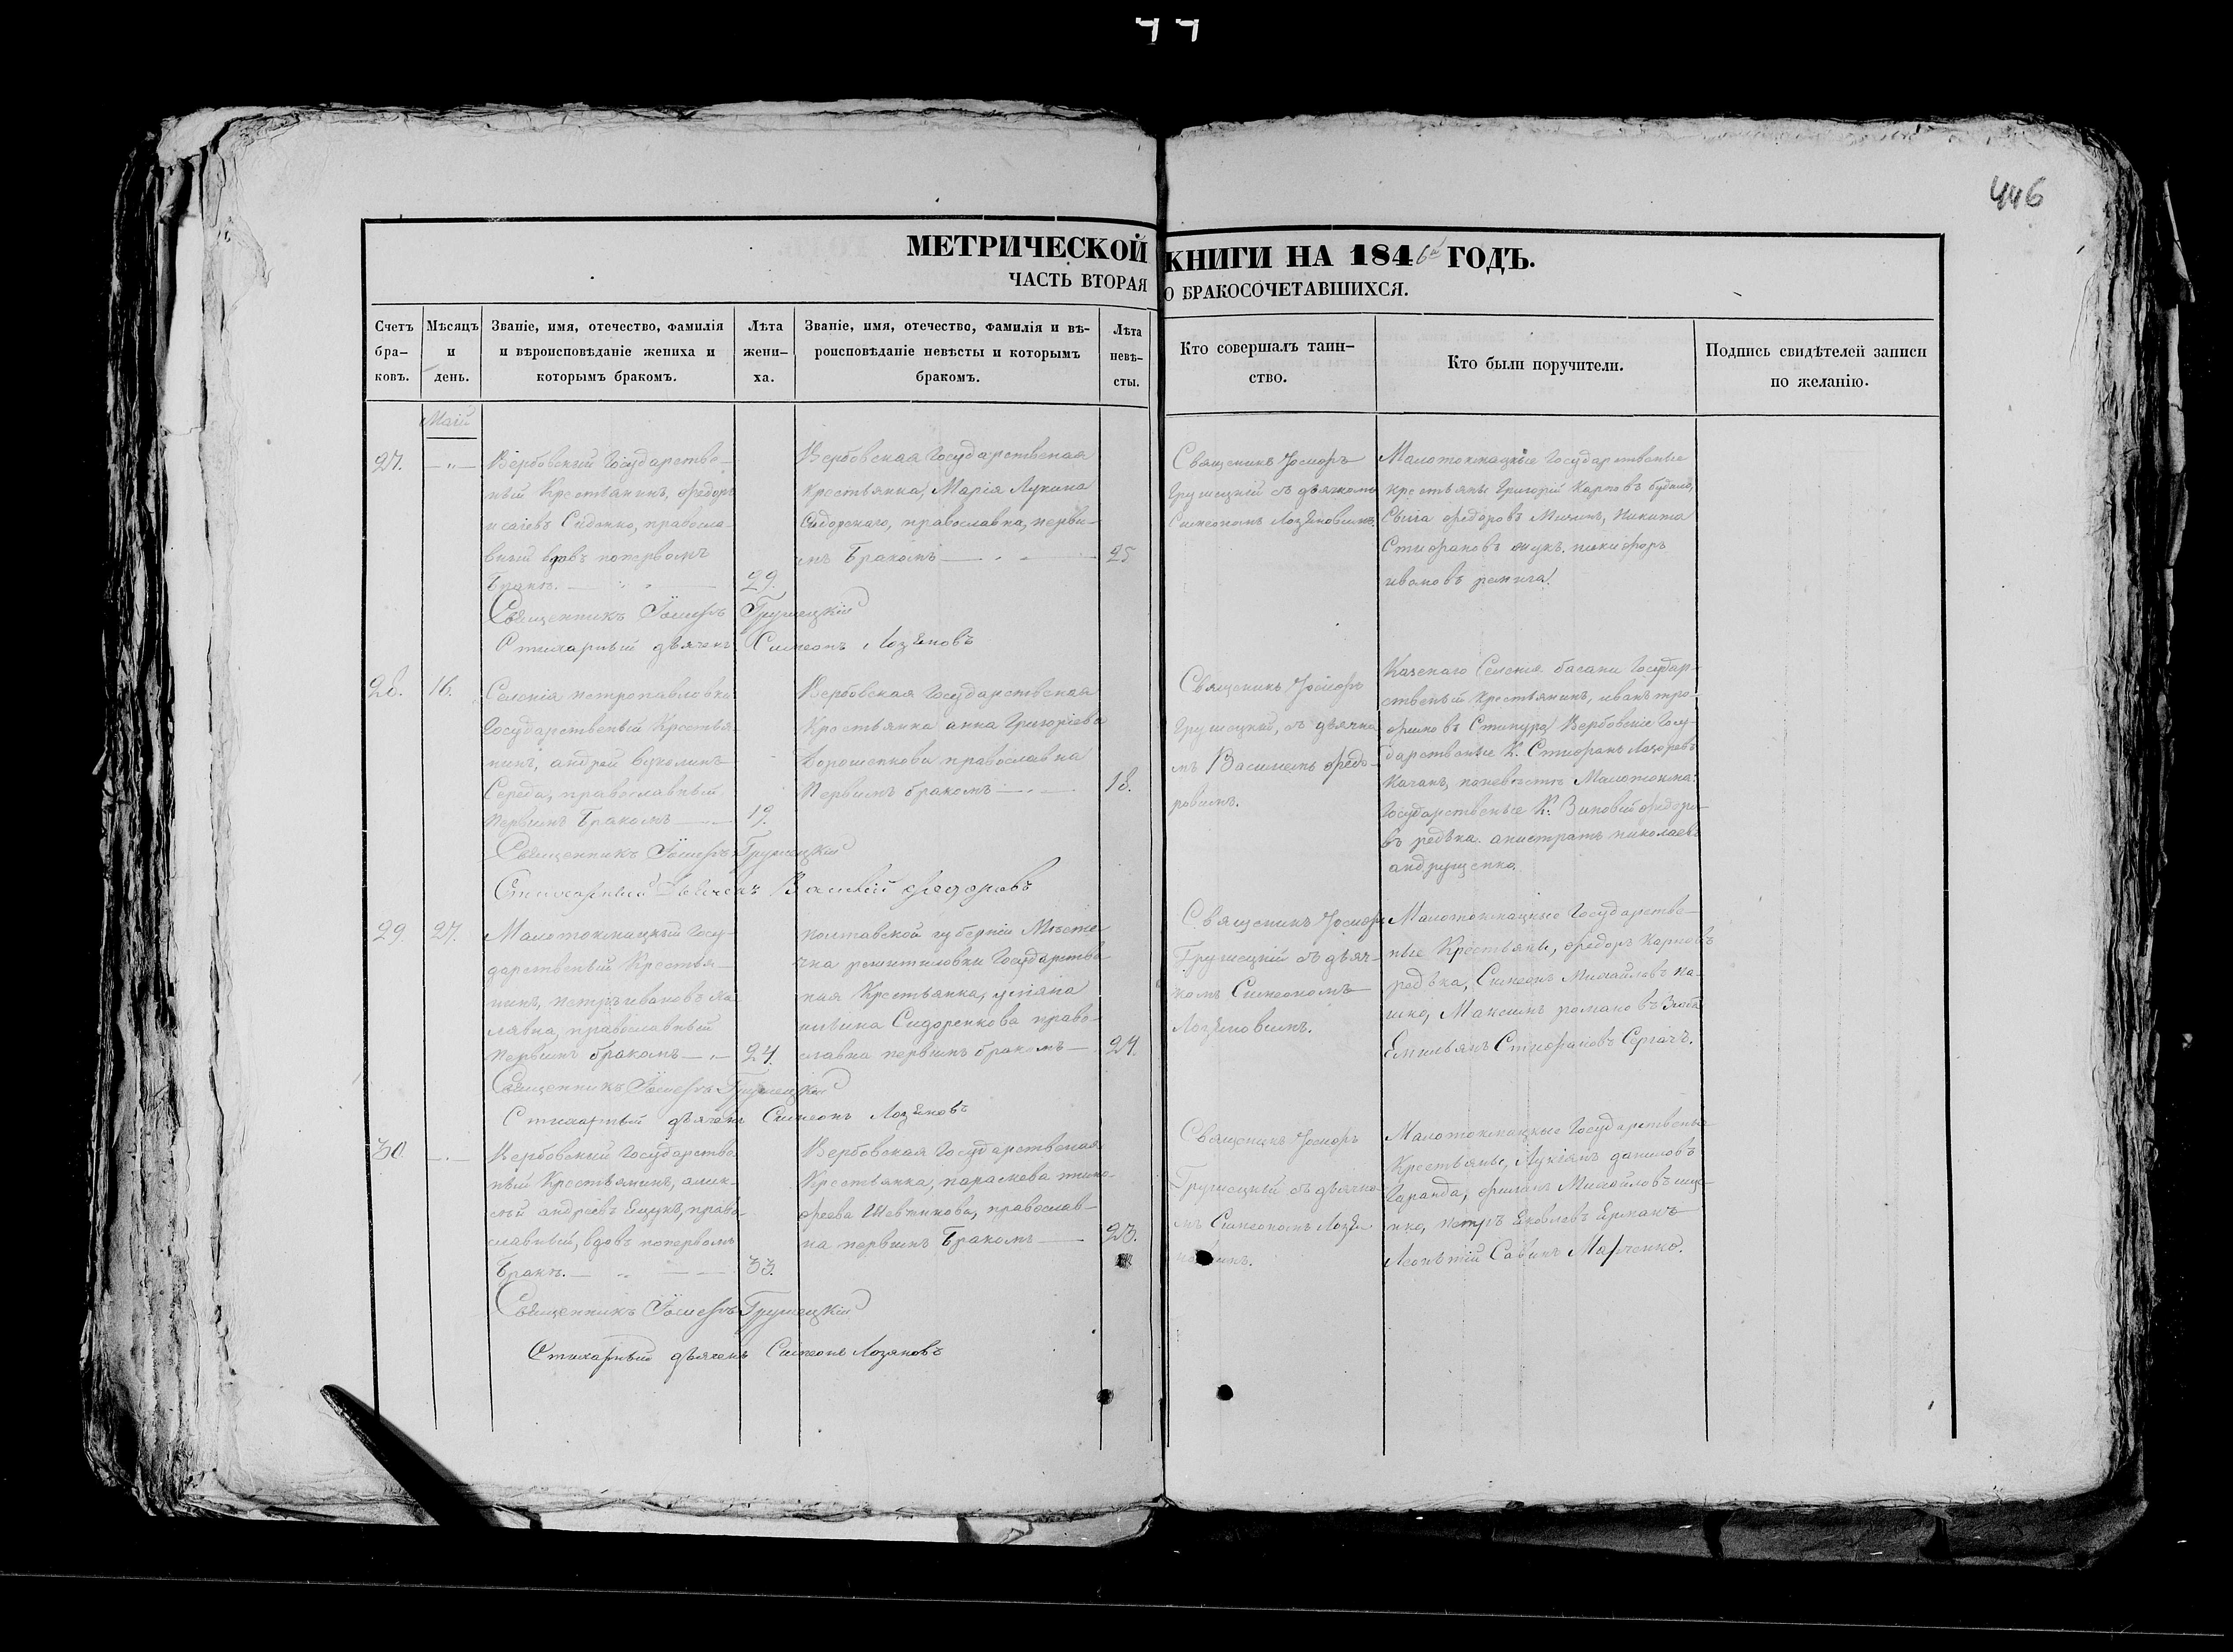 446
МЕТРИЧЕСКОЙ КНИГИ НА 1846й ГОДЪ.
ЧАСТЬ ВТОРАЯ О БРАКОСОЧЕТАВШИХСЯ.
Счетъ бра-
ковъ.
Мѣсяцъ
и
день.
Званіе, имя, отечество, фамилія
и вѣроисповѣданіе жениха и
которымъ бракомъ.
Лѣта
жени-
ха.
Званіе, имя, отечество, фамилія и вѣ-
роисповѣданіе невѣсты и которымъ
бракомъ.
Лѣта
невѣ-
сты.
Кто совершалъ таин-
ство.
Кто были поручители.
Подпись свидѣтелей записи
по желанію.
Маій
27.
Вербовскій Государстве-
ный Крестьянинъ, федоръ
исаіевъ правосла-
вный вдовъ попервомъ
Бракѣ.
29.
Вербовская Государственая
Крестьянка, Марія Лукина
православна, перви-
мъ Бракомъ
25
Священикъ Јосифъ
Грушецкій съ дьячкомъ
Симеономъ
Малотокмацкіе Государственые
крестьяны Григорій Карповъ
федоровъ Никита
Стифановъ жукъ. никифоръ
ивановъ
Священникъ Іосифъ Грушецкій
Стихарный дьячекъ Симеонъ Лозяновъ
28.
16.
Селенія петропавловки
Государственый Крестья-
нинъ, андрей
Середа, православный
Первимъ Бракомъ
19.
Вербовская Государственая
Крестьянка анна Григоріева
Дорошенкова православна
Первимъ бракомъ
18.
Священикъ Јосифъ
Грушецкій, съ дьячко-
мъ Васильемъ федо-
ровимъ.
Казенаго Селенія басани Государ-
ственый Крестьянинъ, иванъ тро-
фимовъ Вербовскіе Госу-
дарственые К. Стифанъ
поневѣстѣ Малотокма:
Государственые К. Зиновій федоро-
въ редька. николаевъ
андрущенко.
Священникъ Іосифъ Грушецкій
Стихарный дьячекъ Василій федоровъ
29
27.
Малотокмацкый Госу-
дарственый Крестья-
нинъ, петръ ивановъ Ха-
лявка, православный
Первимъ бракомъ
24
полтавской губерніи Мѣсте-
чка решитиловки Государстве-
ная Крестьянка, уліяна
Сидоренкова право-
славна первимъ бракомъ
24.
Священикъ Јосифъ
Грушецкій съ дьяч-
комъ Симеономъ
Лозяновимъ.
Малотокмацкые Государстве-
ные Крестьяны, федоръ Карповъ
редька, Симеонъ Михайловъ
Максимъ романовъ
Емильянъ Стифановъ Сергачъ.
Священникъ Іосифъ Грушецкій
Стихарный дьячекъ Симеонъ Лозяновъ
30
Вербовскый Государстве-
ный Крестьянинъ, алик-
сѣй андреевъ право-
славный, вдовъ попервомъ
Бракѣ.
33.
Вербовская Государственая
Крестьянка, параскева тимо-
феева Шевченкова, православ-
на первимъ Бракомъ
23.
Священикъ Јосифъ
Грушецкый съ дьячко-
мъ Симеономъ
Малотокмацкые Государственые
Крестьяны, Лукіянъ даниловъ
Гаранда, Михайловъ
петръ Яковлевъ Ерманъ
Леонтій Савинъ Марченко.
Священникъ Іосифъ Грушецкій
Стихарный дьячекъ Симеонъ Лозяновъ